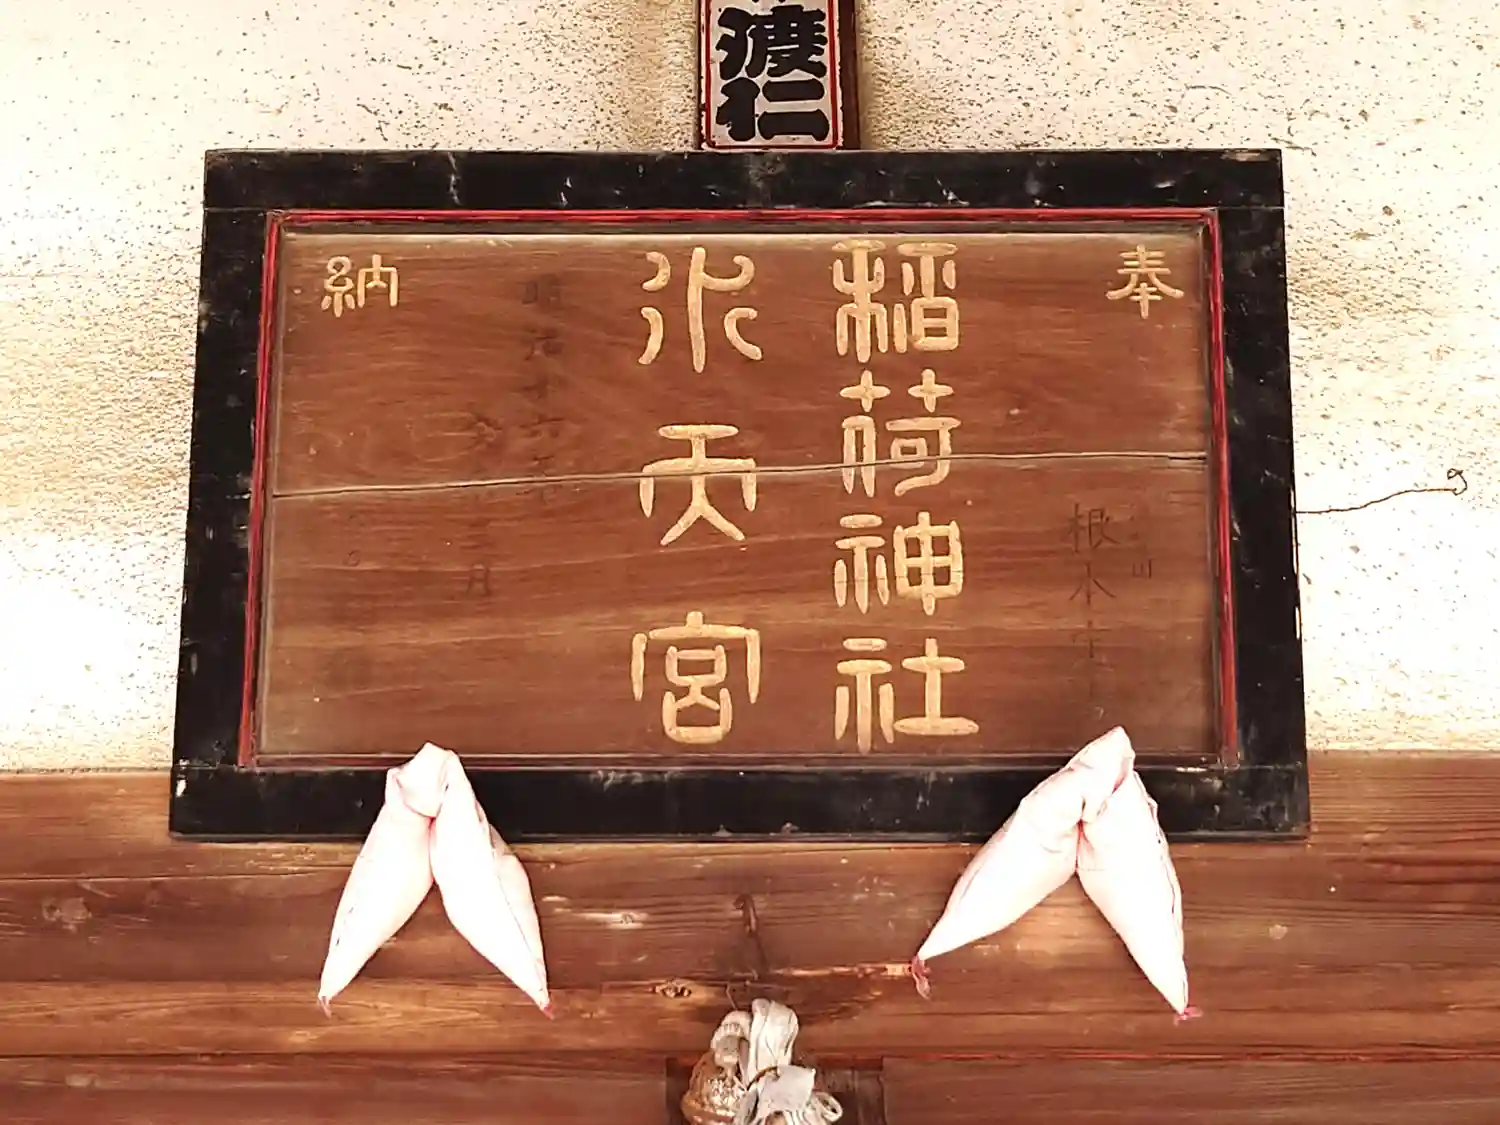 渡仁
奉
根本
稲荷神社
水天宮
月
納